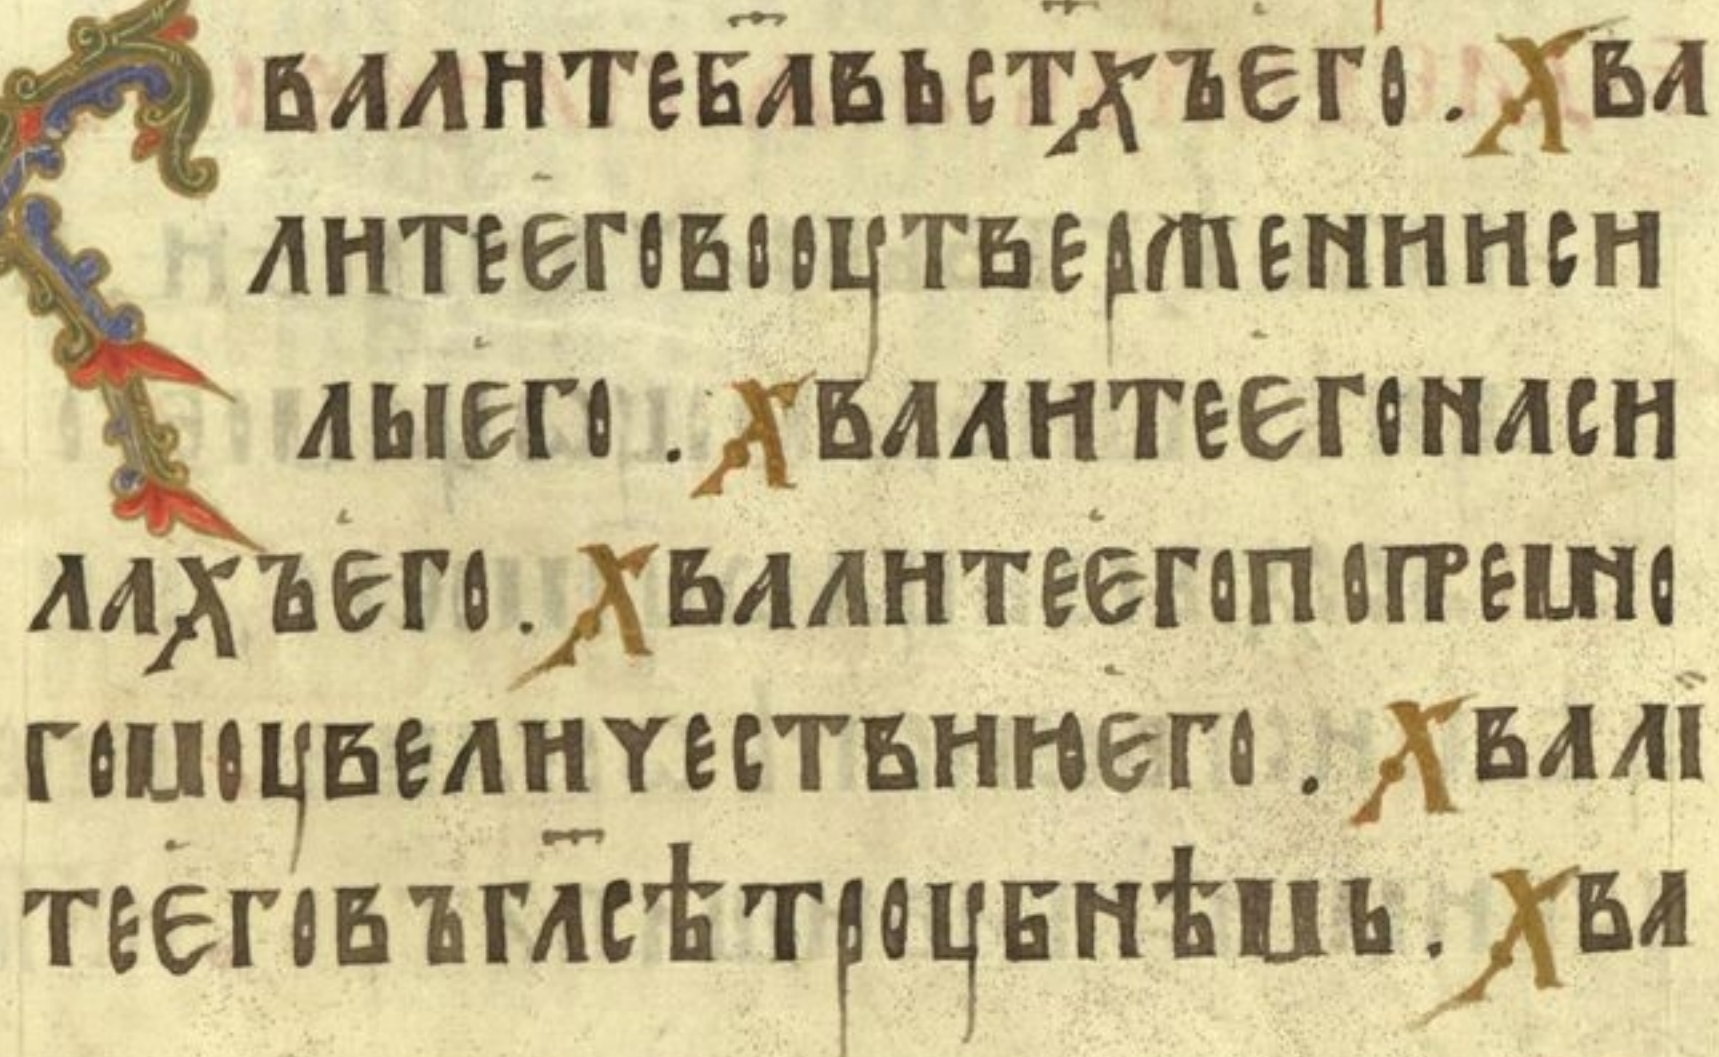 Хвалитеб҃авьст҃хъего . Хва
литееговооутвержениис​и
лыего . Хвалитеегонаси
лахъего . Хвалитеегопопремно
гомоувеличествиюего . Хвалі
тееговъгл҃сѣтроубнѣмь . Хва